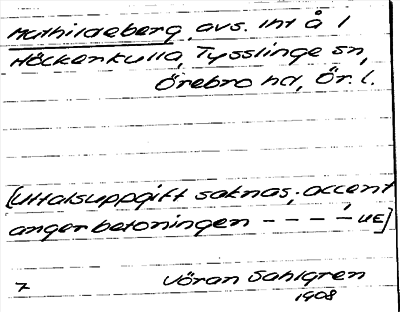 Mathildeberg, avs. lht å 1
Höckerkulla, Tysslinge sn,
Örebro hd, Ör. l.
[Uttalsuppgift saknas; accent
anger betoningen – – – –́ UE]
Jöran Sahlgren
7
1908